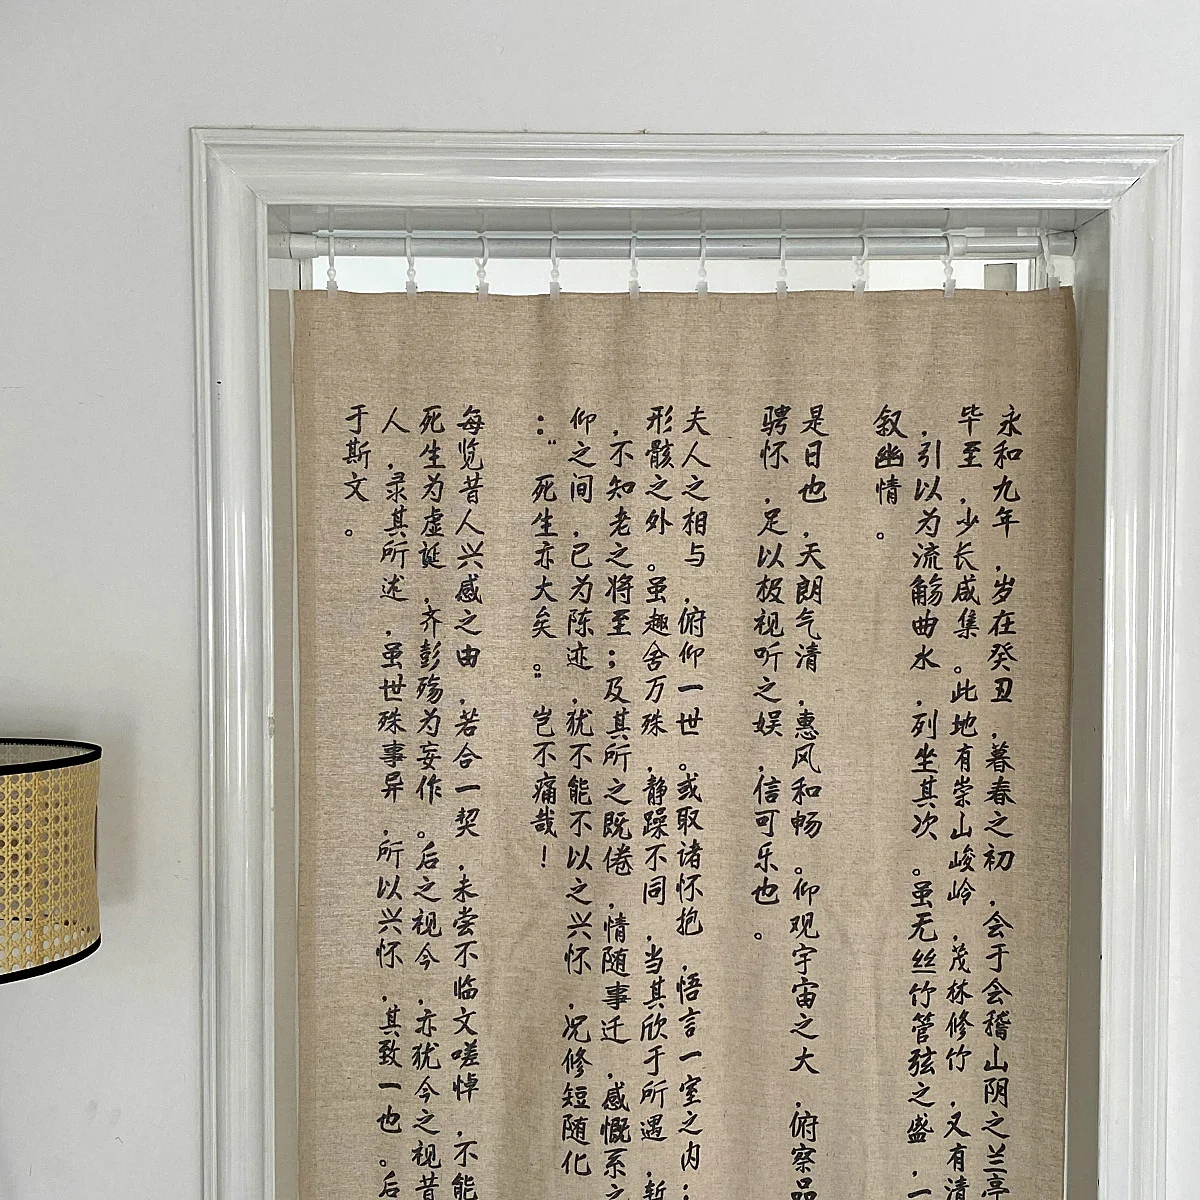 永和九年，岁在癸丑，暮春之初，会于会稽山阴之兰亭
毕至，少长咸集。此地有崇山峻岭，茂林修竹，又有清
，引以为流觞曲水，列坐其次。虽无丝竹管弦之盛，一
叙幽情。
是日也，天朗气清，惠风和畅。仰观宇宙之大，俯察品
骋怀，足以极视听之娱，信可乐也。
夫人之相与，俯仰一世。或取诸怀抱，悟言一室之内；
形骸之外。虽趣舍万殊，静躁不同，当其欣于所遇，暂
，不知老之将至；及其所之既倦，情随事迁，感慨系之
仰之间，已为陈迹，犹不能不以之兴怀，况修短随化
：“死生亦大矣。”岂不痛哉！
每览昔人兴感之由，若合一契，未尝不临文嗟悼，不能
死生为虚诞，齐彭殇为妄作。后之视今，亦犹今之视昔
人，录其所述，虽世殊事异，所以兴怀，其致一也。后
于斯文。